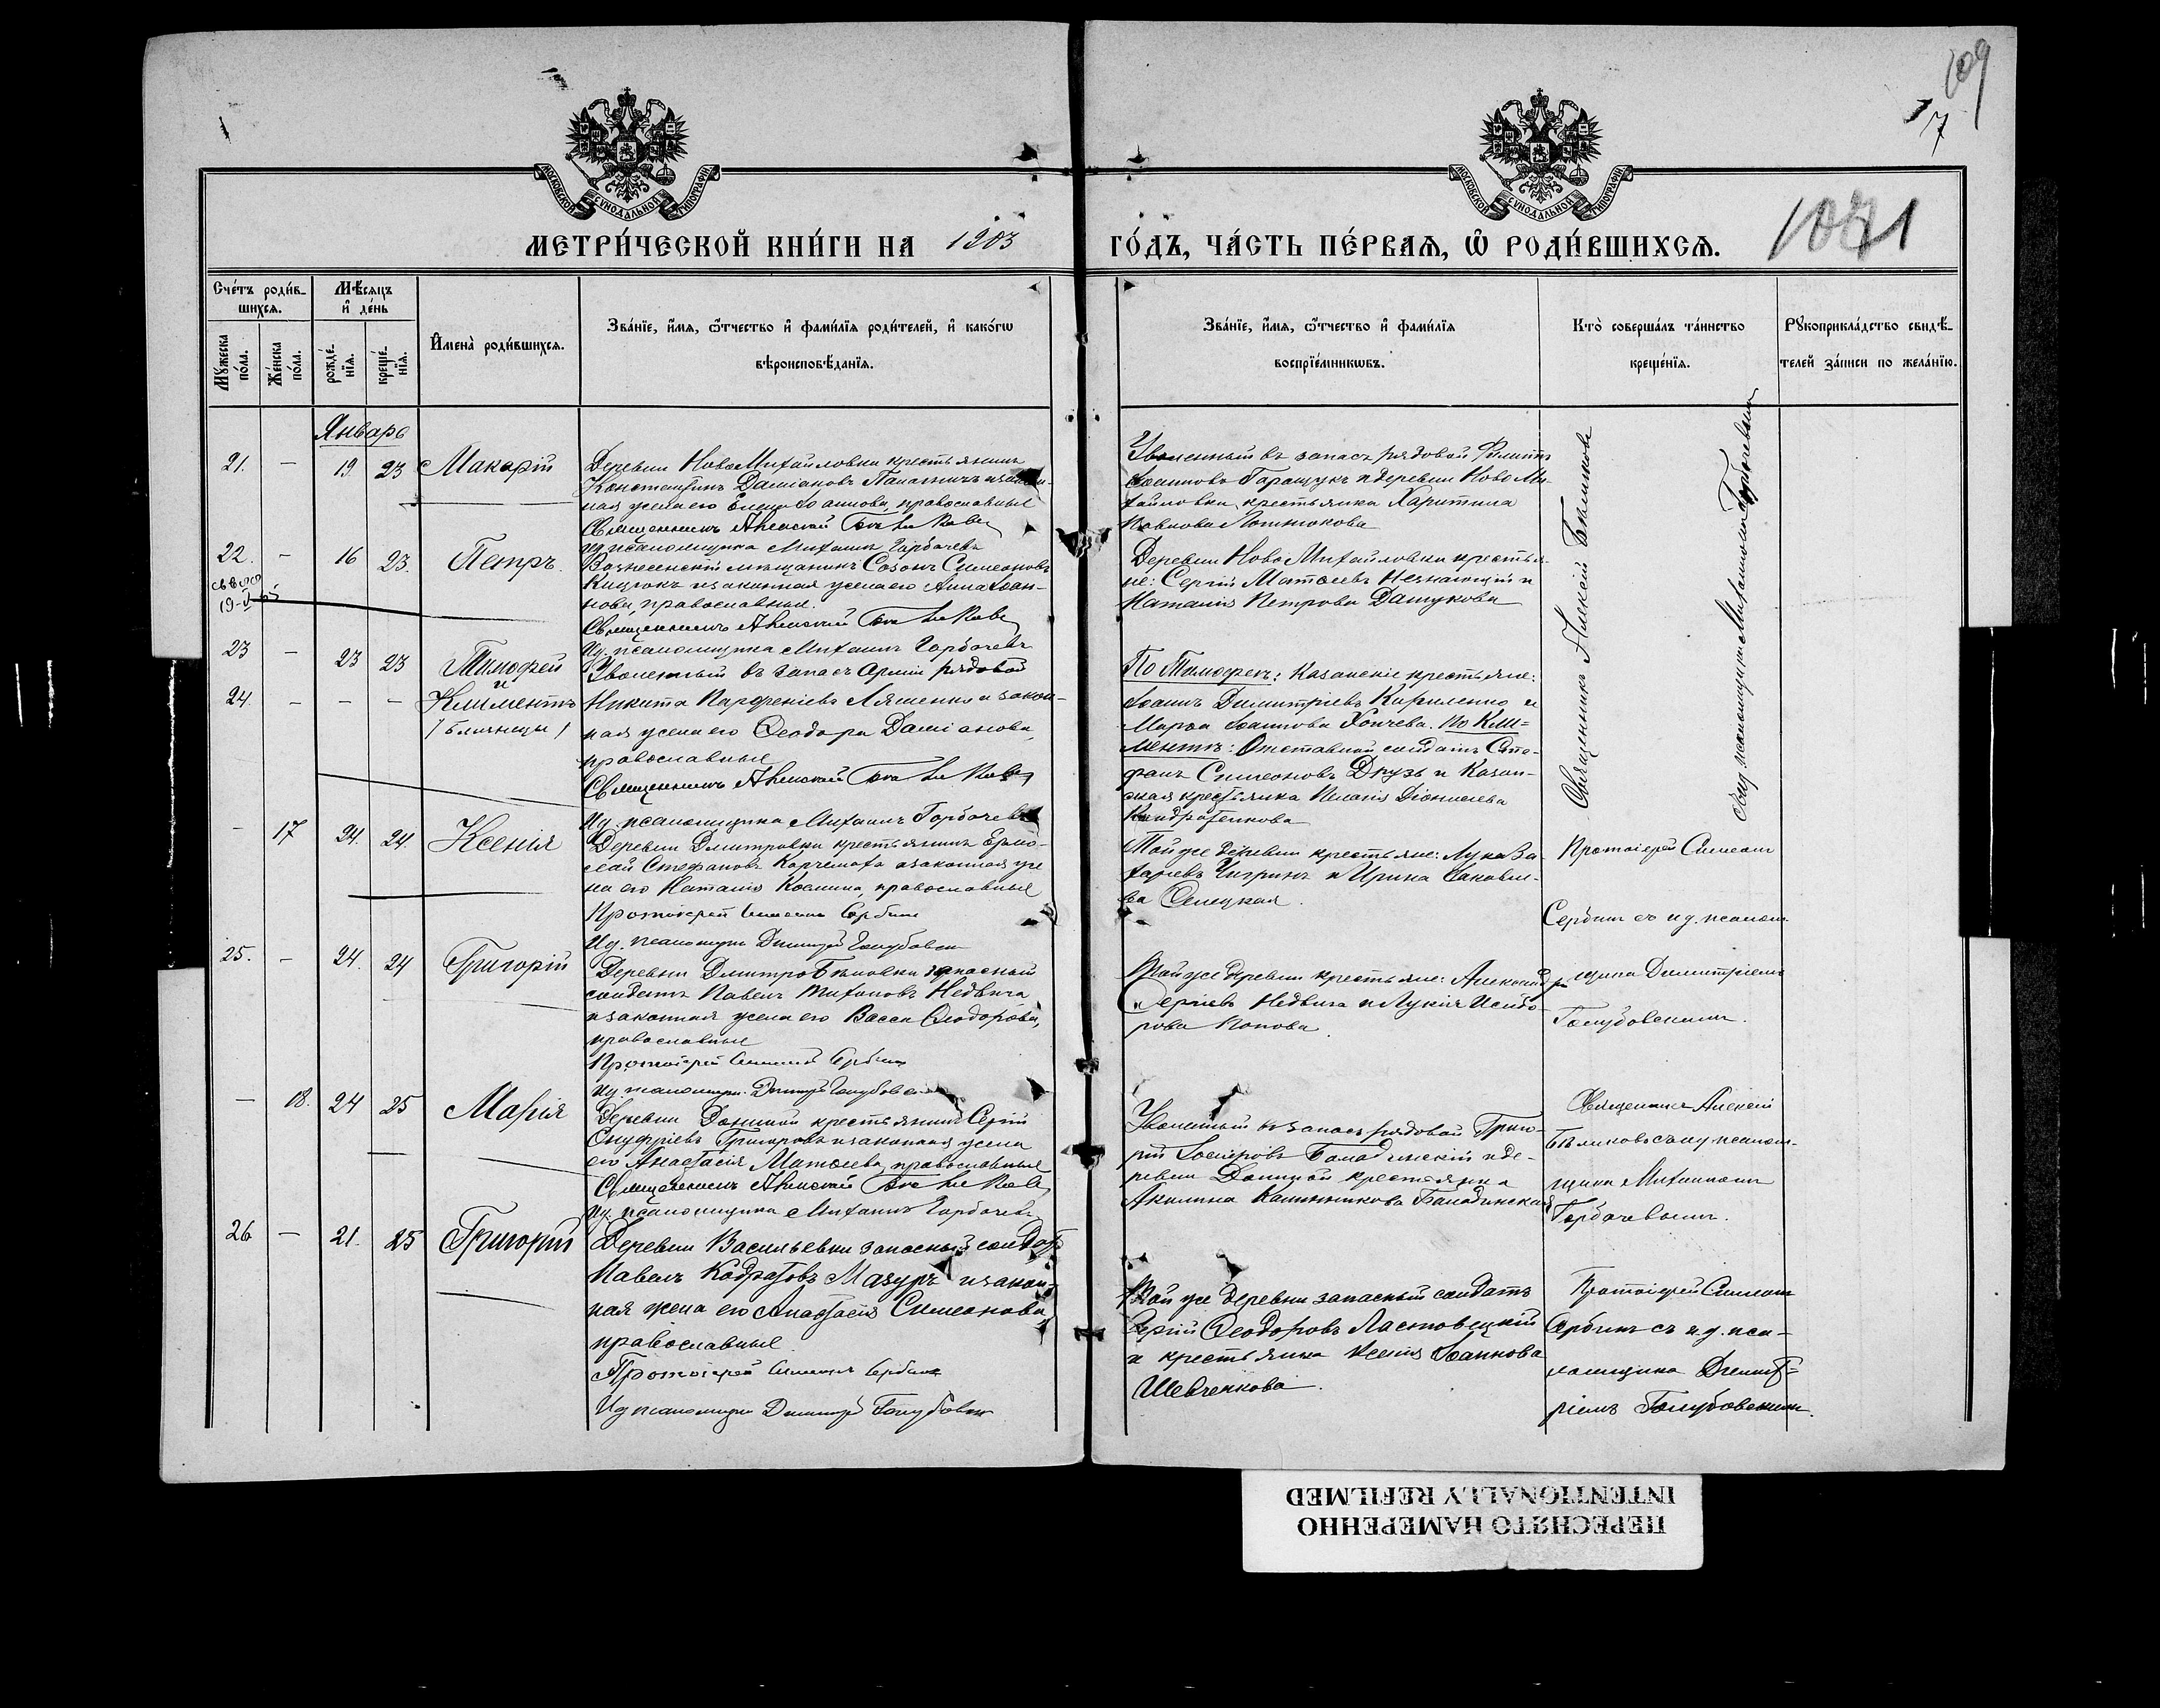 109
17
МОСКОВСКОЙ СѴНОДАЛЬНОЙ ТИПОГРАФІИ
МОСКОВСКОЙ СѴНОДАЛЬНОЙ ТИПОГРАФІИ
МЕТРИ́ЧЕСКОЙ КНИ́ГИ НА 1903
ГО́ДЪ, ЧА́СТЬ ПЕ́РВАѦ, Ѽ РОДИ́ВШИХСѦ.
Сче́тъ роди́в-
шихсѧ.
Мѣ́сѧцъ
и҆ де́нь
Мꙋ́жеска
по́ла.
Же́нска
по́ла.
рожде́-
нїѧ.
креще́-
нїѧ.
И҆мена̀ роди́вшихсѧ.
Зва́нїе, и҆́мѧ, ѻ҆́тчество и҆ фами́лїѧ роди́телей, и҆ како́гѡ
вѣроисповѣ́данїѧ.
Зва́нїе, и҆́мѧ, ѻ҆́тчество и҆ фами́лїѧ
воспрїе́мникѡвъ.
Кто̀ соверша́лъ та́инство
креще́нїѧ.
Рꙋкоприкла́дство свидѣ́-
телей за́писи по жела́нїю.
Январь
21. - 19 23 Макарій
Деревни НовоМихайловки крестьянинъ
Константинъ Даміановъ
ная жена его Елена Іоаннова, православные
Священникъ Алексій Бѣликовъ
Ид. псаломщика Михаилъ Горбачевъ
Уволенный въ запасъ рядовой Филиппъ
Іоанновъ Гаращукъ и деревни НовоМи-
хайловки крестьянка Харитина
Павлова
Священникъ Алексій Бѣликовъ
съ ид. псаломщика Михаиломъ Горбачевымъ
22. - 16 23. Петръ.
Вознесенскій мѣщанинъ Созонъ Симеоновъ
и законная жена его Анна Іоан-
нова, православные.
Священникъ Алексій Бѣликовъ
Ид. псаломщика Михаилъ Горбачевъ
Деревни НовоМихайловки крестья-
не: Сергій Матѳеевъ Незнающій и
Наталія Петрова Дашукова
23 - 23 23 Тимоѳей
и
24. - - - Климентъ
/Близнецы/
Уволенный въ запасъ арміи рядовой
Никита Парѳеніевъ Ляшенко и закон-
ная жена его Ѳеодора Даміанова,
православные
Священникъ Алексій Бѣликовъ
Ид. псаломщика Михаилъ Горбачевъ
По Тимоѳеѣ: Казанскіе крестьяне:
Іоаннъ Димитріевъ Кириленко и
Марѳа Іоаннова. По Кли-
ментѣ: Отставной солдатъ Сте-
фанъ Симеоновъ Друзь и Казан-
ская крестьянка Пелагія Діонисіева
Кондратенкова
- 17 24. 24. Ксенія
Деревни Дмитровки крестьянинъ Ермо-
лай Стефановъ и законная же
на его Наталія Космина, православные
Протоіерей Симеонъ Сербинъ
Ид. псаломщ. Димитрій Голубовскій
Той же деревни крестьяне: Лука За-
харіевъ Чигринъ и Ирина Іаковле-
ва
Протоіерей Симеонъ
Сербинъ съ ид. псалом-
25. - 24. 24 Григорій
Деревни ДмитроБѣловки запасный
солдатъ Павелъ Тихоновъ Недвига
и законная жена его Васса Ѳеодорова,
православные
Протоіерей Симеонъ Сербинъ
Ид. псаломщ. Димитрій Голубовскій
Той же деревни крестьяне: Александръ
Сергіевъ Недвига и Лукія Исидо-
рова Попова.
щика Димитріемъ
Голубовскимъ.
- 18. 24 25 Марія
Деревни Донской крестьянинъ Сергій
Онуфріевъ Григоровъ и законная жена
его Анастасія Матѳеева, православные
Священникъ Алексій Бѣликовъ
Ид. псаломщика Михаилъ Горбачевъ
Уволенный въ запасъ рядовой Григо-
рій Іосифовъ и де-
ревни Донской крестьянка
Акилина
Священникъ Алексій
Бѣликовъ съ ид. псалом-
щика Михаиломъ
Горбачевымъ.
26 - 21. 25 Григорій
Деревни Васильевки запасный солдатъ
Павелъ Кодратовъ Мазуръ и закон-
ная жена его Анастасія Симеонова,
православные
Протоіерей Симеонъ Сербинъ
Ид псаломщи Димитрій Голубовскій
Той же деревни запасный солдатъ
Сергій Ѳеодоровъ Ластовецкій
и крестьянка Ксенія Іоаннова
Шевченкова.
Протоіерей Симеонъ
Сербинъ съ и.д. пса-
ломщика Димит-
ріемъ Голубовскимъ.
ПЕРЕСНЯТО НАМЕРЕННО
INTENTIONALLY REFILMED